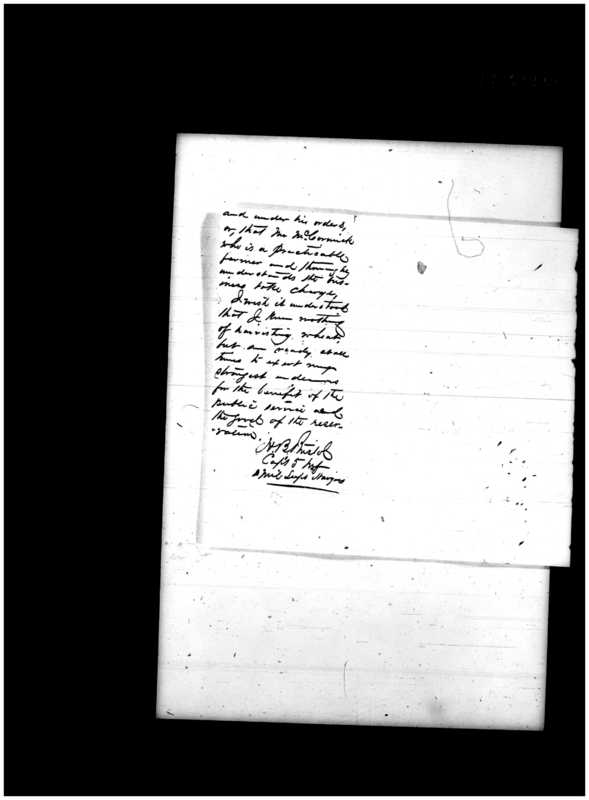 and under his orders,
or, that Mr McCormick
who is a practicable
farmer and thoroughly
understands the bus-
iness take charge,
I wish it understood
that I know nothing
of harvesting wheat
but am ready at all
times to exert my
strongest endeavors
for the benefit of the
public service and
the good of the reser-
vation.
H. B. Bristol
Capt 5 Inf
& Mil Supt Navajos